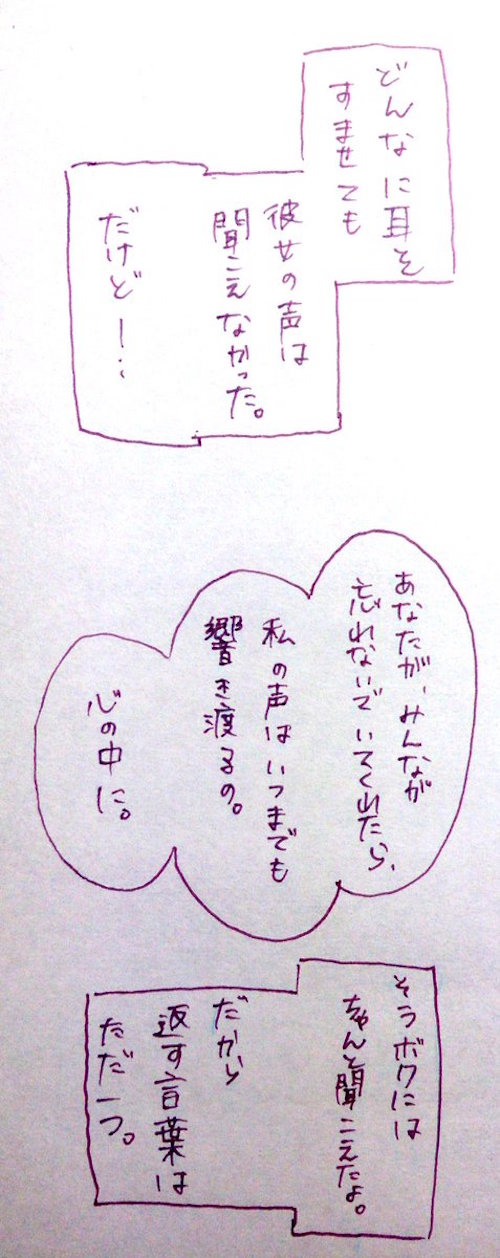 どんなに耳を
すませても
彼女の声は
聞こえなかった。
だけど一…
あなたが、みんなが
忘れないでいてくれたら、
私の声はいつまでも
響き渡るの。
心の中に。
そうボクには
ちゃんと聞こえたよ。
だから
返す言葉は
ただ一つ。